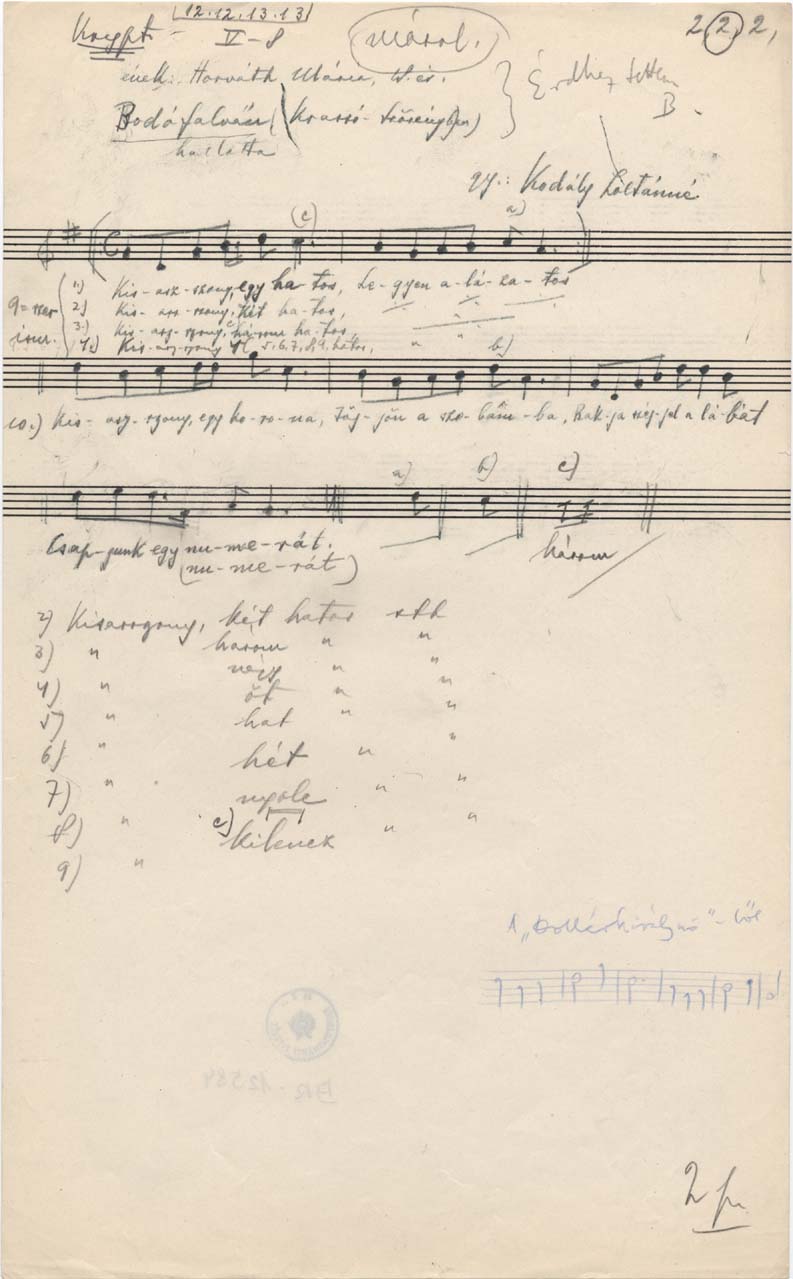 12.12.13.13
2, 2, 2,
V-8
másol.
ének: Horváth Mária,
Bodófalván (Krassó-Szörényben)
hallotta
B.
gy.: Kodály Zoltánné
(c) a)
1.) Kis-asz-szony, egy ha-tos, Le-gyen a-lá-za-tos
2.) Kis-asz-szony, két ha-tos,
3.) Kis-asz-szony, c) három ha-tos,
4.) Kis-asz-szony 4, 5, 6, 7, 8, 9, hatos, " " b)
10.) Kis-asz-szony, egy ko-ro-na, Jőj-jön a szo-bám-ba, Rak-ja széj-jel a lá-bát
a) b) c)
Csap-junk egy nu-me-rát.
(nu-me-rát)
három
2) Kisasszony, két hatos stb
3) " három " "
4) " négy " "
5) " öt " "
6) " hat " "
7) " hét " "
8) " nyolc " "
9) " c) kilenc " "
A „Dollárkirálynő"-ből
BR-12584